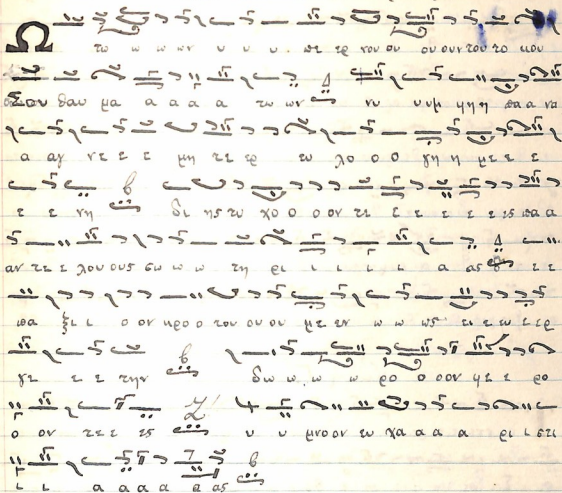 Ω τω ω ω ων υ υ υ πε ερ νου ου ου ουν του το κου
σου θαυ μα α α α α τω ων Δ νυ υυμ φη η η πα α να
α αγ νε ε ε μη τε ερ ευ λο ο ο γη η με ε ε
ε ε νη β δι ης τυ χο ο ο ον τε ε ε ε ε ες πα α
αν τε ε λου ους σω ω ω τη ρι ι ι ι ι α ας Δ ε ε
πα ξι ι ο ον κρο ο τον ου ου με εν ω ω ως ευ ερ
γε ε ε την β δω ω ω ω ρο ο ο ον φε ε ρο
ο ον τε ε ες Ζ υ υ μνο ον ευ χα α α α ρι ι στι
ι ι α α α α ας β